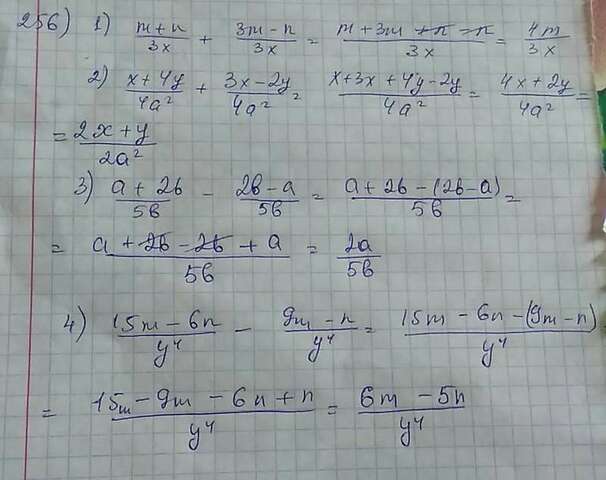 256) 1) (m+n)/3x + (3m-n)/3x = (m+3m+n-n)/3x = 4m/3x
2) (x+4y)/4a² + (3x-2y)/4a² = (x+3x+4y-2y)/4a² = (4x+2y)/4a² =
= (2x+y)/2a²
3) (a+2b)/5b - (2b-a)/5b = (a+2b-(2b-a))/5b =
= (a+2b-2b+a)/5b = 2a/5b
4) (15m-6n)/y⁴ - (9m-n)/y⁴ = (15m-6n-(9m-n))/y⁴
= (15m-9m-6n+n)/y⁴ = (6m-5n)/y⁴